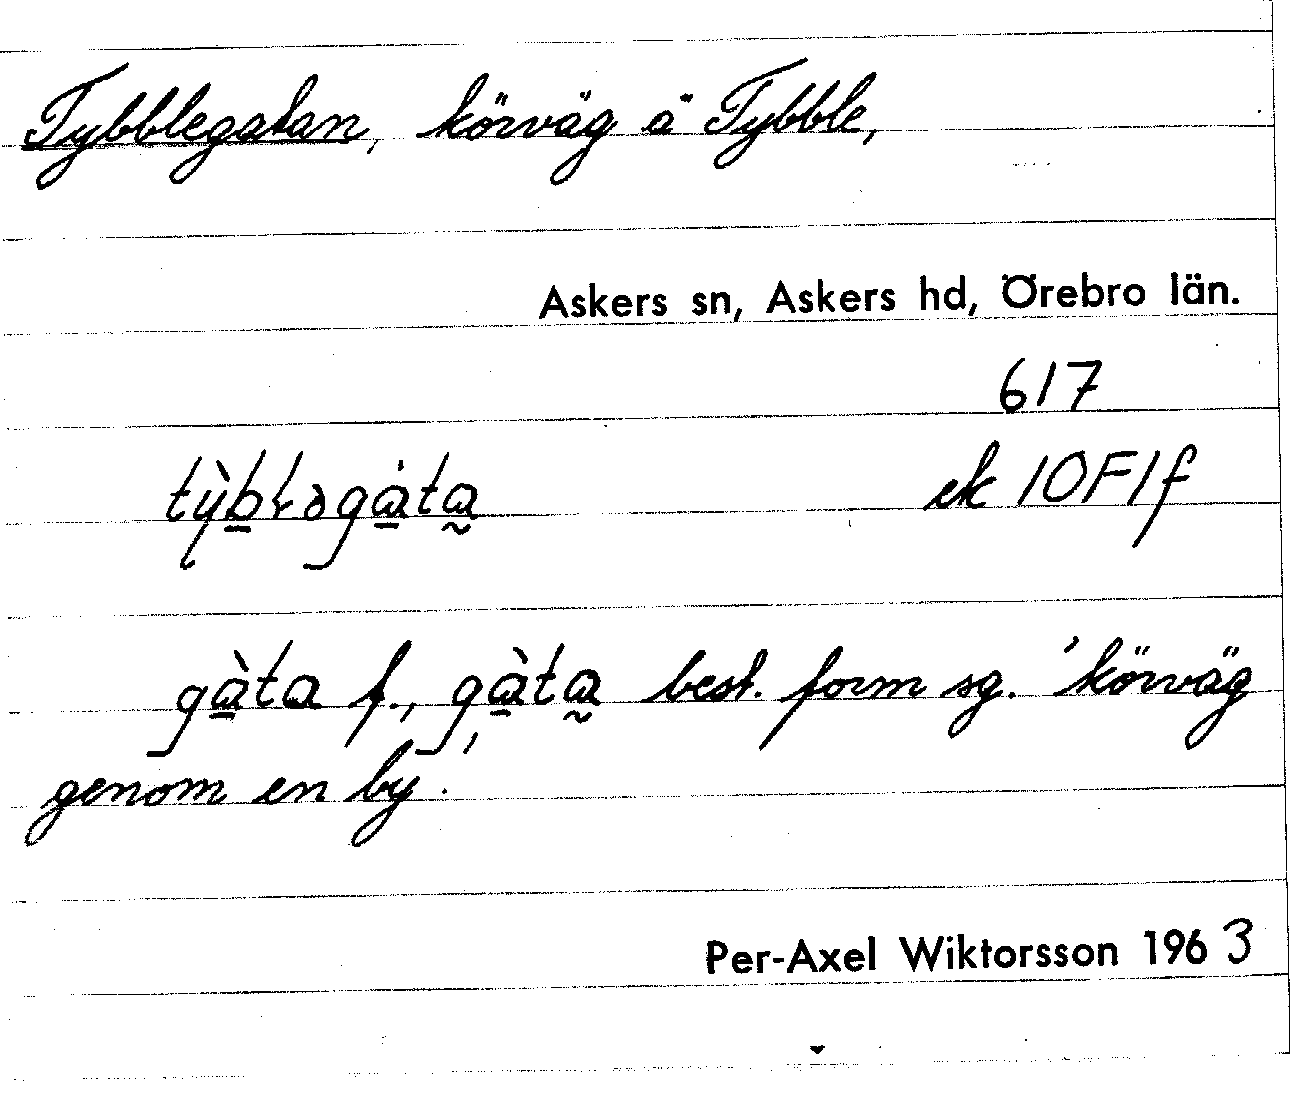 Tybblegatan, körväg å Tybble,
Askers sn, Askers hd, Örebro län.
617
tỳbləgàta ek 10F1f
gàta f., gàta best. form sg. 'körväg
genom en by'.
Per-Axel Wiktorsson 1963